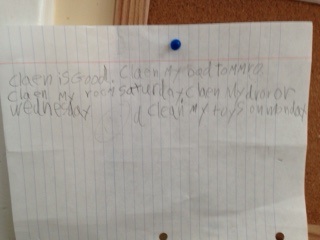 Claen is Good. Claen My bed tommro
Claen My room saturday Claen My dror or
wednesday I'd Clean My toys on Monday